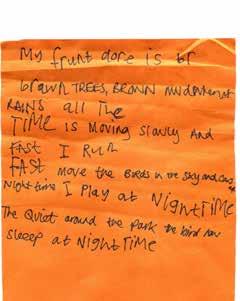 My frunt dore is br
brawn TREES, BROWN mudarkeout
RAINS all The
TIME is Moving slawly And
FAST I RuN
FAST move the BIrds in the sky and
Night time I PlAy at NIGHTTIME
The Quiet around the Park the bird
sleeep at NIGHTTIME